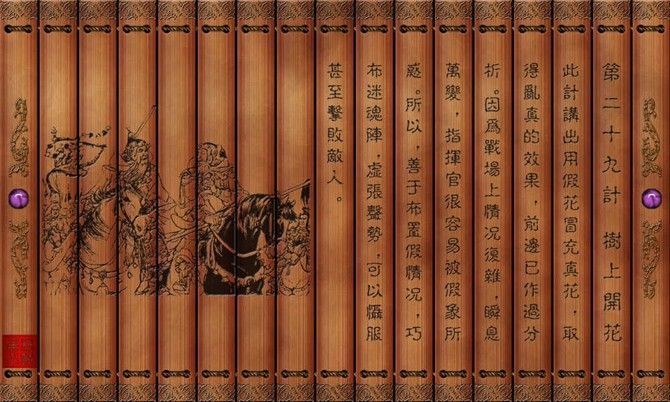 第二十九計 樹上開花
此計講出用假花冒充真花，取
得亂真的效果，前邊已作過分
析。因爲戰場上情况復雜，瞬息
萬變，指揮官很容易被假象所
惑。所以，善于布置假情况，巧
布迷魂陣，虛張聲勢，可以懾服
甚至擊敗敵人。